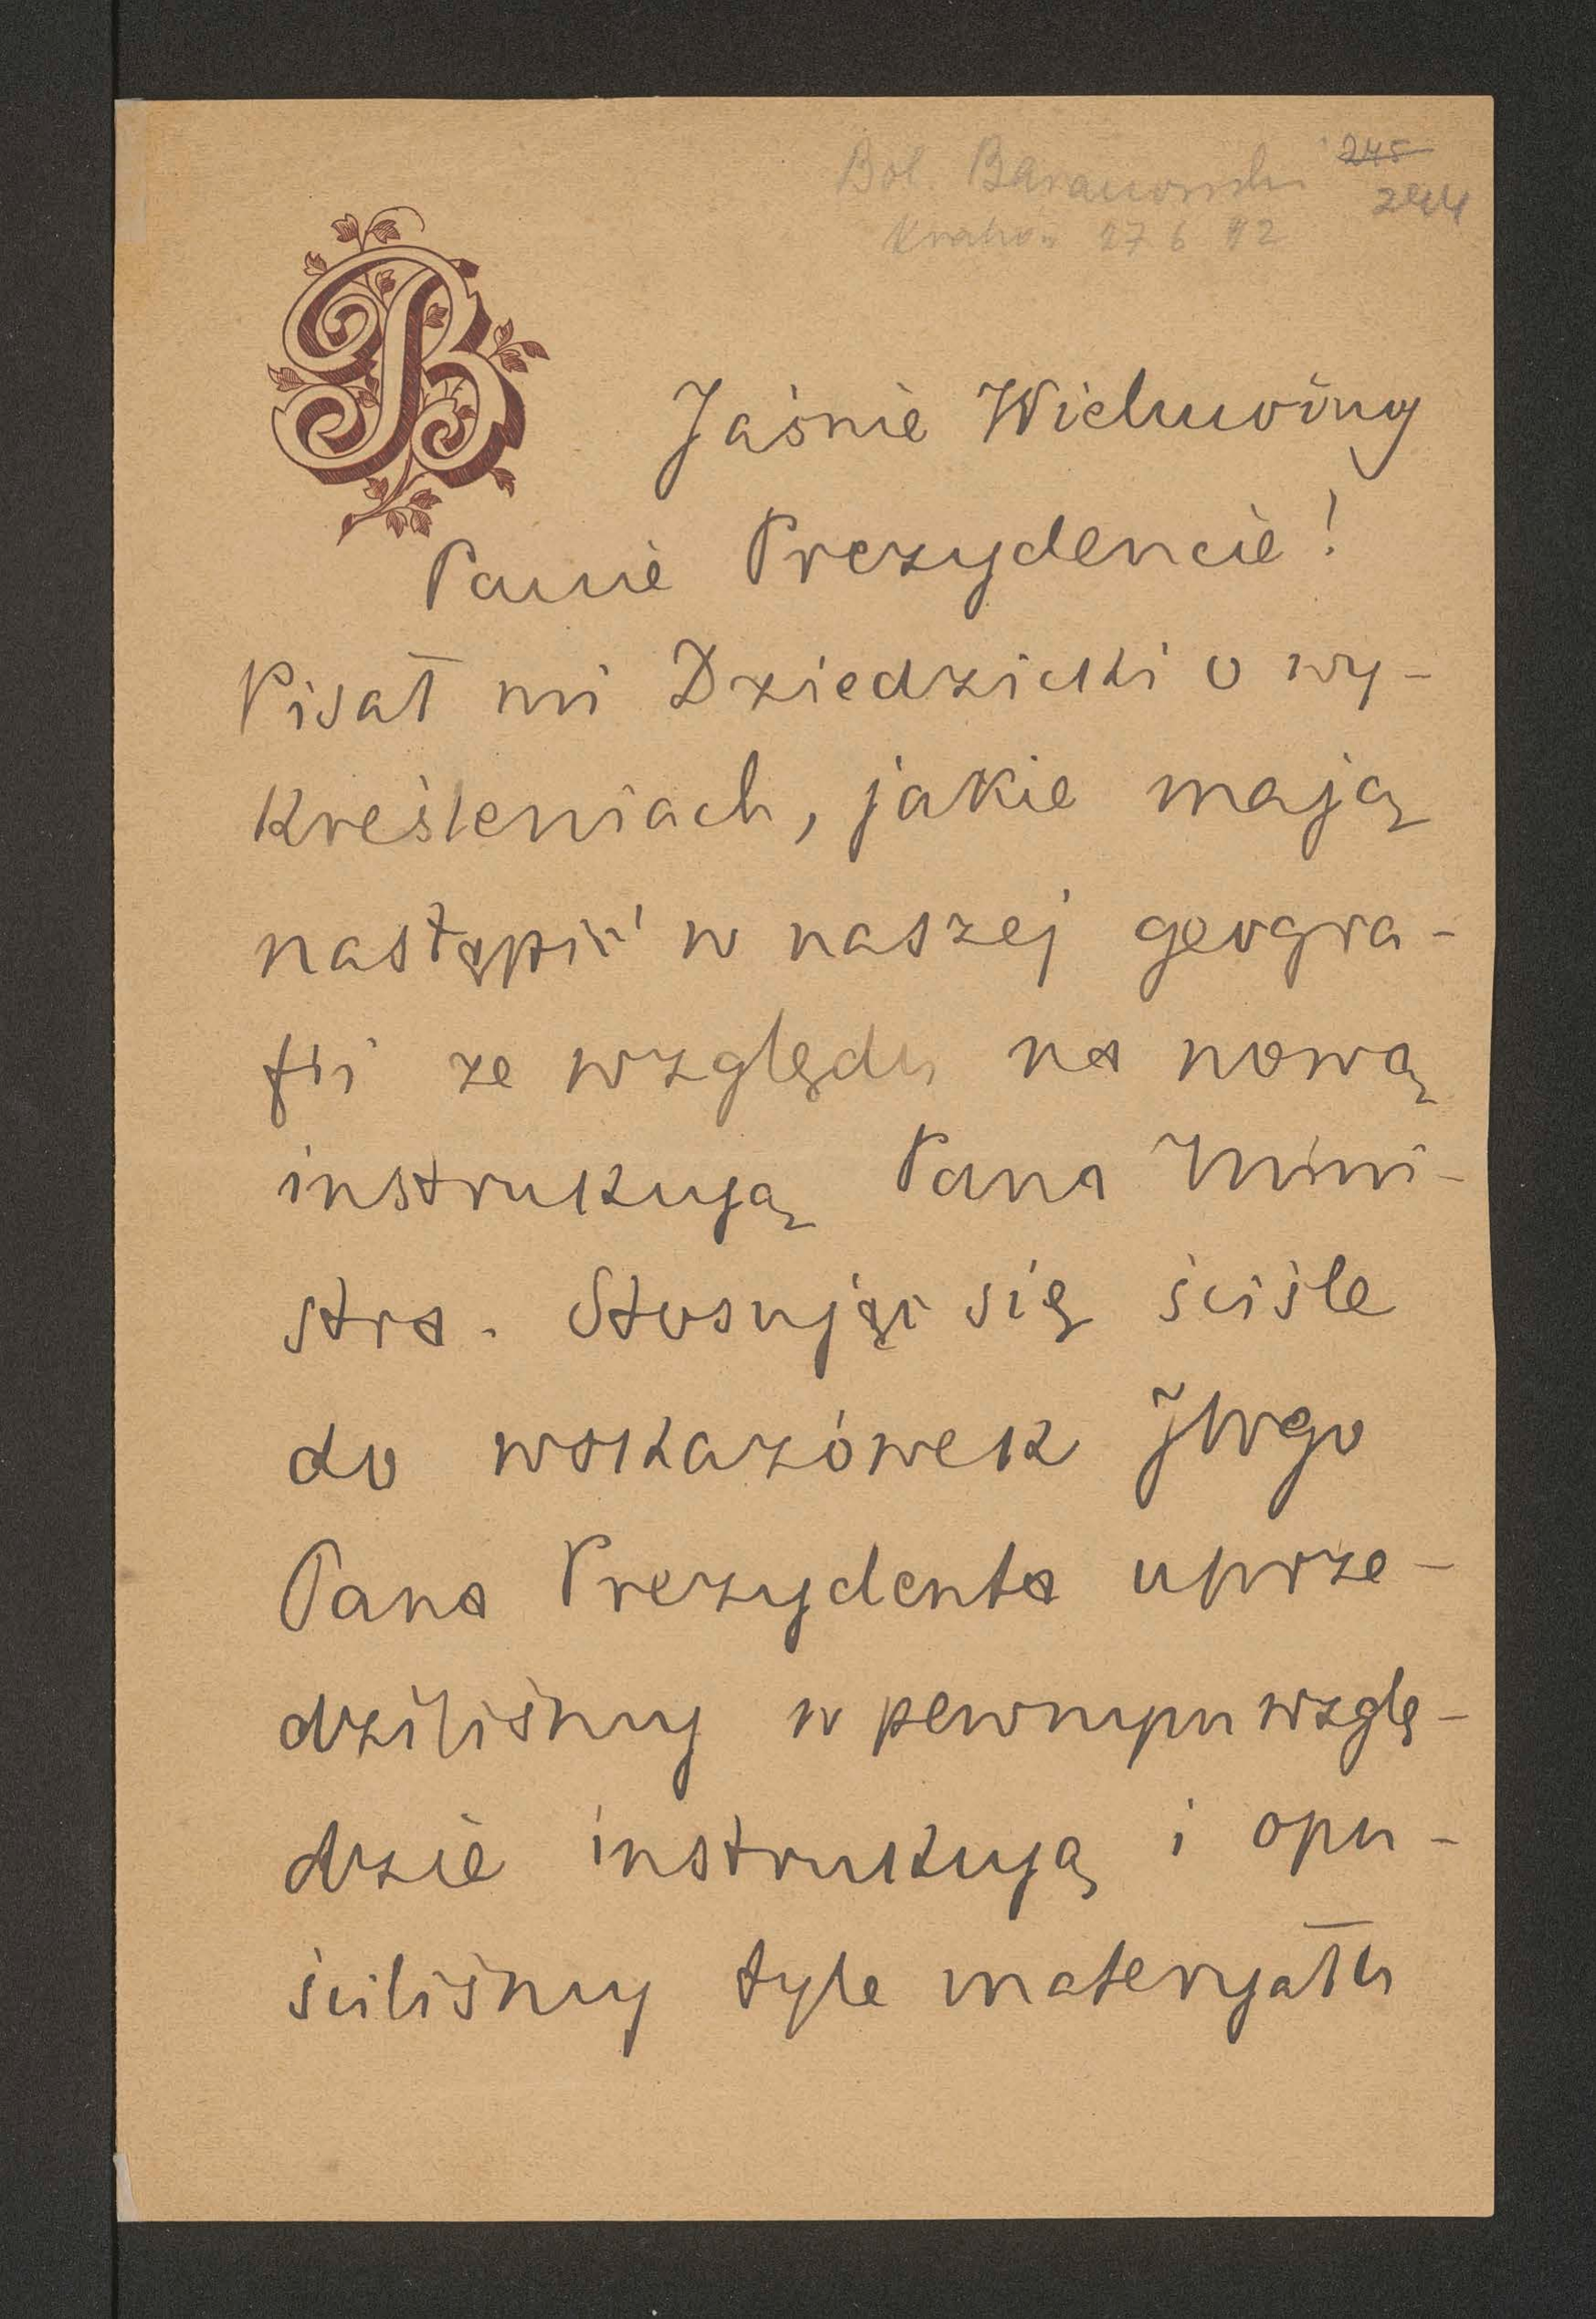 Bol. Baranowski 245
244
Kraków 27 6 92
B
Jaśnie Wielmożny
Panie Prezydencie!
Pisał mi Dziedzicki o wy-
kreśleniach, jakie mają
nastąpić w naszej geogra-
fii ze względu na nową
instrukcyą Pana Mini-
stra. Stosując się ściśle
do wskazówek JWgo
Pana Prezydenta uprze-
dziliśmy w pewnym wzglę-
dzie instrukcyą i opu-
ściliśmy tyle materyału